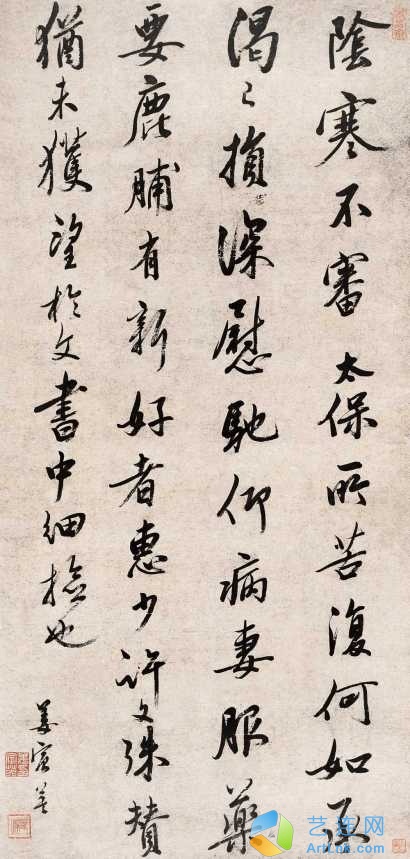 陰寒不審太保所苦復何如承
渴已損深慰馳仰病妻服藥
要鹿脯有新好者惠少許文殊賛
猶未獲望於文書中細檢也
姜宸英
艺连网